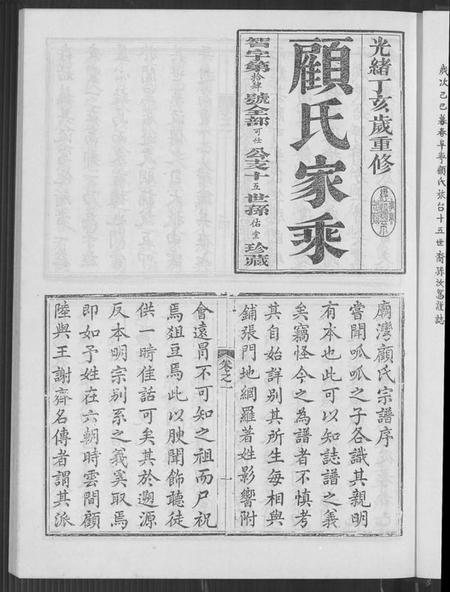 光緒丁亥歲重修
顧氏家乘
智字第拾肆號全部可仕公支十五世孫佑堂珍藏
歲次己巳暮春阜寧顧氏旅台十五世裔孫汝鶯謹誌
廟灣顧氏宗譜序
嘗聞呱呱之子各識其親明
有本也此可以知誌譜之義
矣竊怪今之為譜者不慎考
其自始詳別其所生每相與
鋪張門地網羅著姓影響附
卷之一
一
會遠冐不可知之祖而尸祝
焉狙豆焉此以腴聞飾聽徒
供一時佳話可矣其於遡源
反本明宗别系之義奚取焉
即如予姓在六朝時雲間顧
陸與王謝齊名傳者謂其派